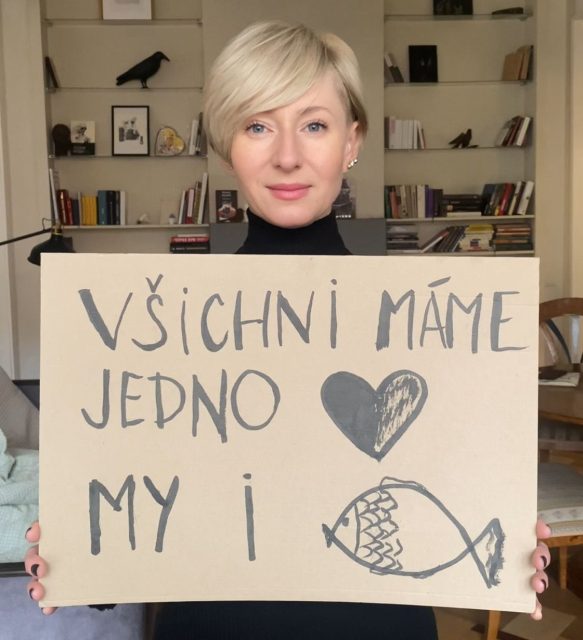 VŠiCHNi MÁME
JEDNO
MY i